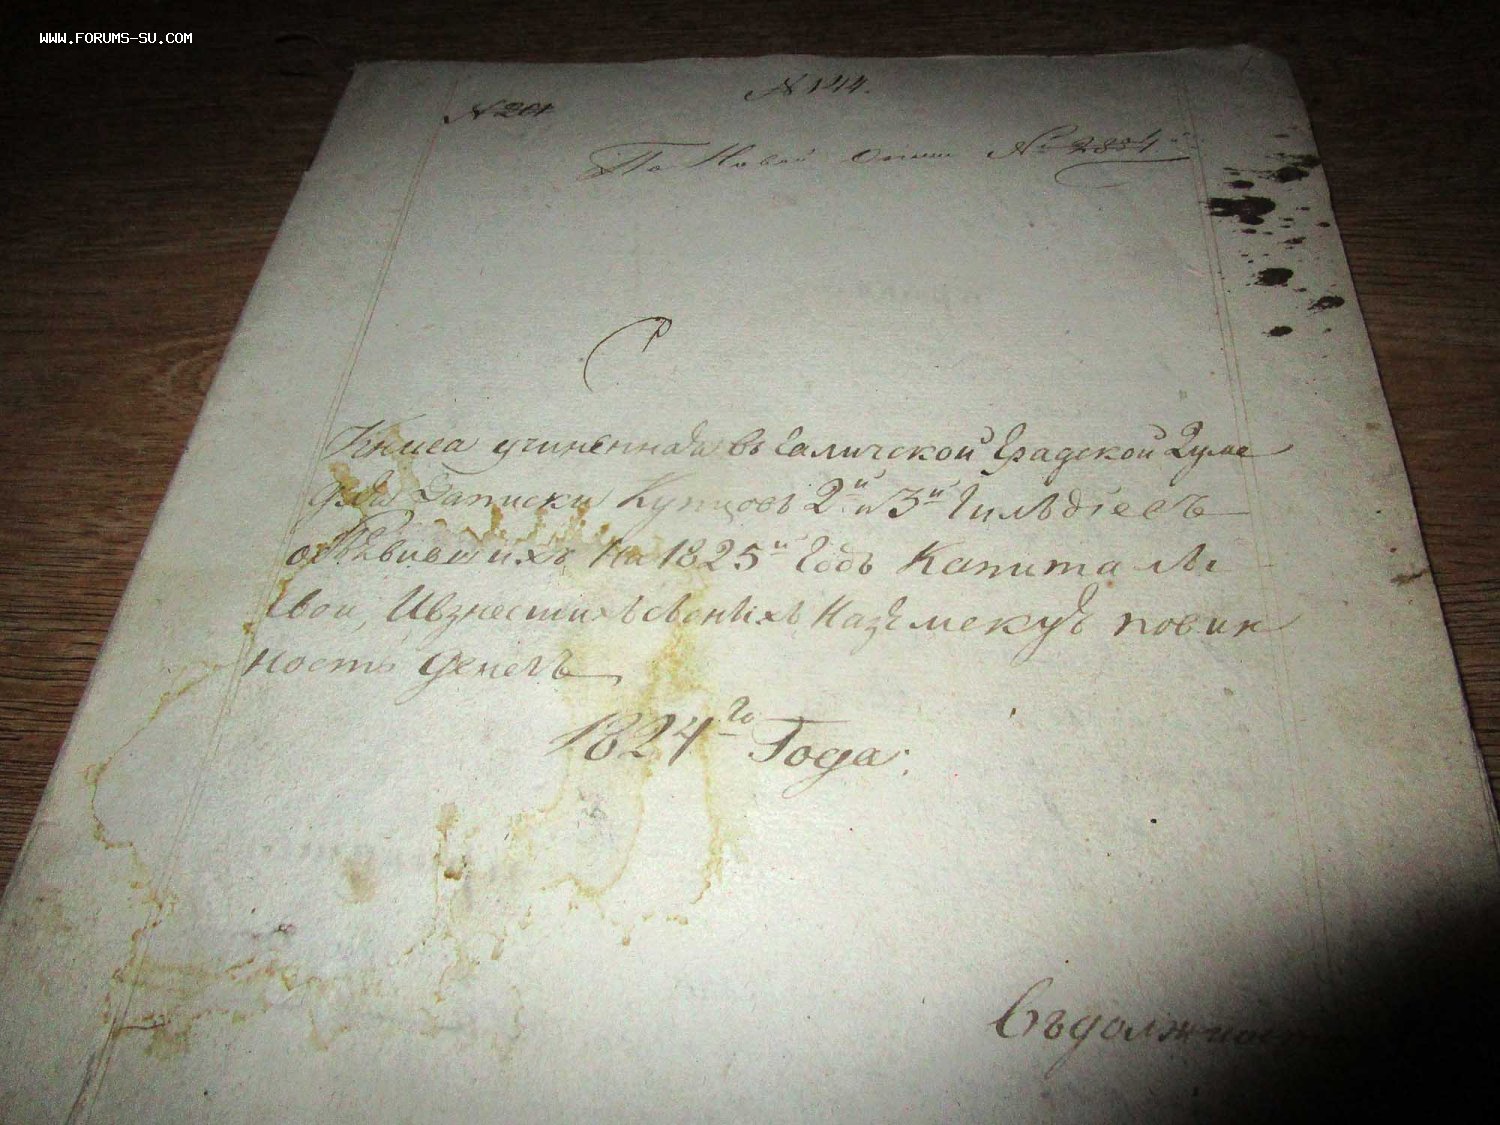 WWW.FORUMS-SU.COM
№ 1414.
№ 201
По Новой Описи № 2884
Книга учиненная въ Галичской Градской Думе
для Записки Купцовъ 2й и 3й Гильдiевъ
объявившихъ на 1825й Годъ Капиталы
Свои, Ивзнесшихъ
повин
ность Денегъ
1824го Года.
Въдолжнос